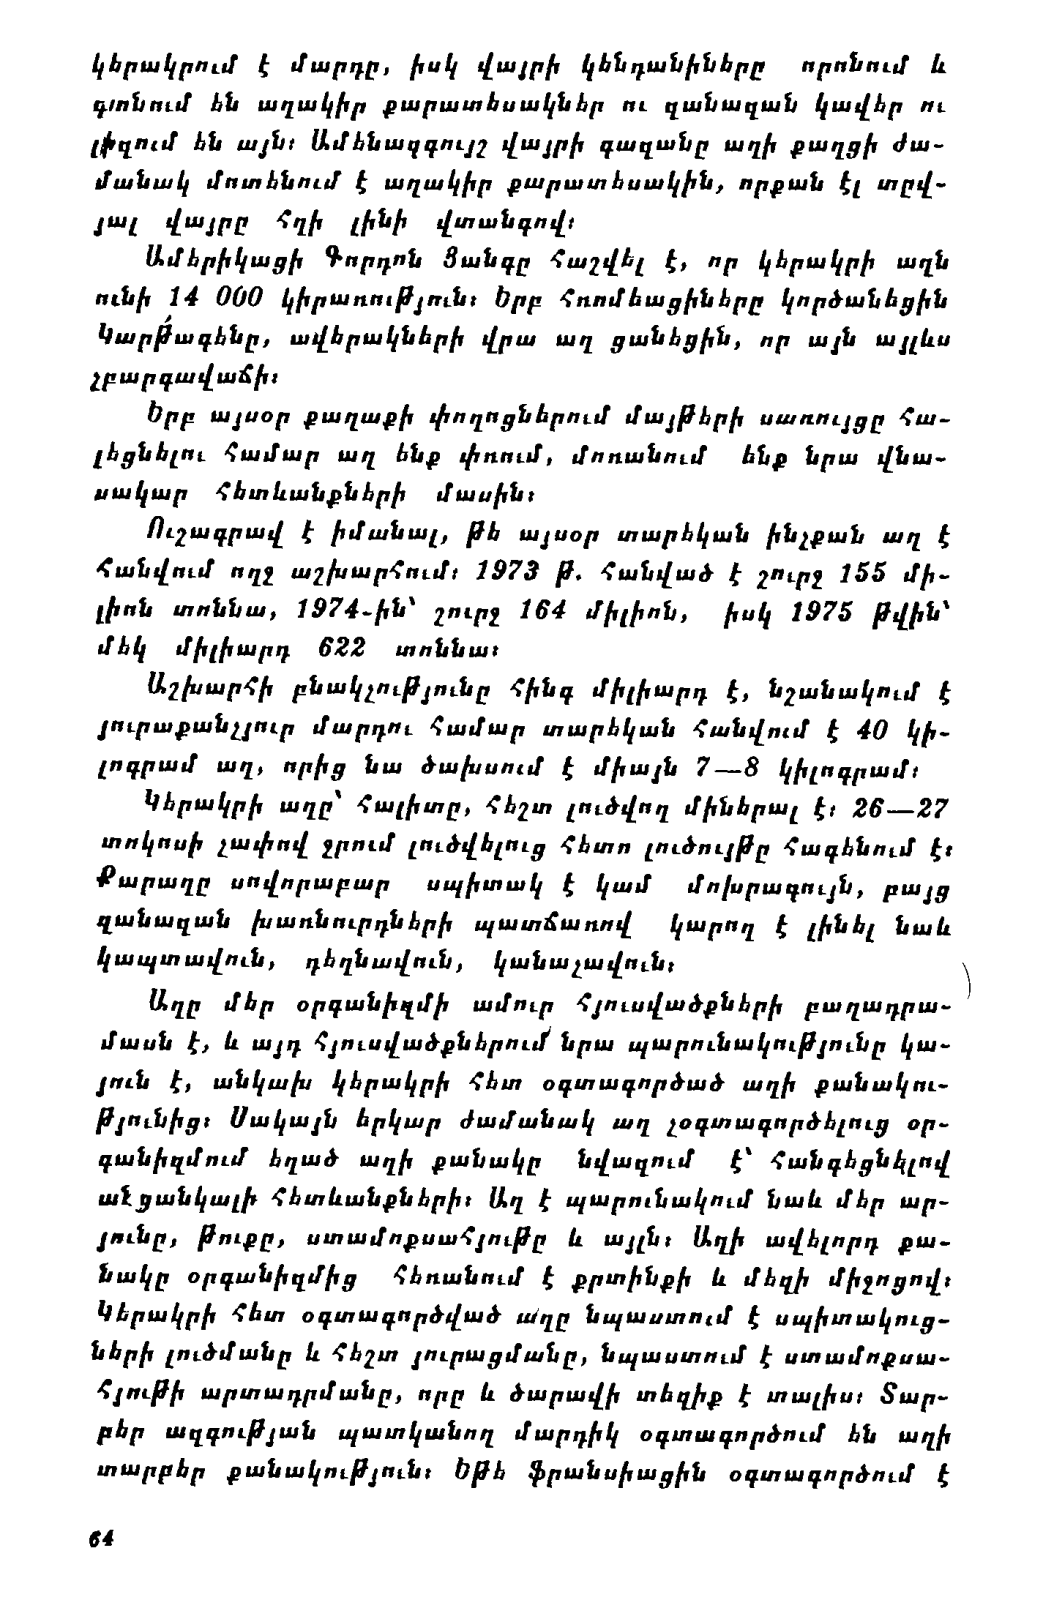 կերակրում է մարդը, իսկ վայրի կենդանիները որոնում և
գտնում են աղակիր քարատեսակներ ու զանազան կավեր ու
լիզում են այն։ Ամենազգույշ վայրի գազանը աղի քաղցի ժա-
մանակ մոտենում է աղակիր քարատեսակին, որքան էլ տըվ-
յալ վայրը հղի լինի վտանգով։
Ամերիկացի Գորդոն Յանգը հաշվել է, որ կերակրի աղն
ունի 14 000 կիրառություն։ Երբ հռոմեացիները կործանեցին
Կարթագենը, ավերակների վրա աղ ցանեցին, որ այն այլևս
չբարգավաճի։
Երբ այսօր քաղաքի փողոցներում մայթերի սառույցը հա-
լեցնելու համար աղ ենք փռում, մոռանում ենք նրա վնա-
սակար հետևանքների մասին։
Ուշագրավ է իմանալ, թե այսօր տարեկան ինչքան աղ է
հանվում ողջ աշխարհում։ 1973 թ. հանված է շուրջ 155 մի-
լիոն տոննա, 1974-ին՝ շուրջ 164 միլիոն, իսկ 1975 թվին՝
մեկ միլիարդ 622 տոննա։
Աշխարհի բնակչությունը հինգ միլիարդ է, նշանակում է
յուրաքանչյուր մարդու համար տարեկան հանվում է 40 կի-
լոգրամ աղ, որից նա ծախսում է միայն 7—8 կիլոգրամ։
Կերակրի աղը՝ հալիտը, հեշտ լուծվող միներալ է։ 26—27
տոկոսի չափով ջրում լուծվելուց հետո լուծույթը հագենում է։
Քարաղը սովորաբար սպիտակ է կամ մոխրագույն, բայց
զանազան խառնուրդների պատճառով կարող է լինել նաև
կապտավուն, դեղնավուն, կանաչավուն։
Աղը մեր օրգանիզմի ամուր հյուսվածքների բաղադրա-
մասն է, և այդ հյուսվածքներում նրա պարունակությունը կա-
յուն է, անկախ կերակրի հետ օգտագործած աղի քանակու-
թյունից։ Սակայն երկար ժամանակ աղ չօգտագործելուց օր-
գանիզմում եղած աղի քանակը նվազում է՝ հանգեցնելով
անցանկալի հետևանքների։ Աղ է պարունակում նաև մեր ար-
յունը, թուքը, ստամոքսահյութը և այլն։ Աղի ավելորդ քա-
նակը օրգանիզմից հեռանում է քրտինքի և մեզի միջոցով։
Կերակրի հետ օգտագործված աղը նպաստում է սպիտակուց-
ների լուծմանը և հեշտ յուրացմանը, նպաստում է ստամոքսա-
հյութի արտադրմանը, որը և ծարավի տեղիք է տալիս։ Տար-
բեր ազգության պատկանող մարդիկ օգտագործում են աղի
տարբեր քանակություն։ Եթե ֆրանսիացին օգտագործում է
64